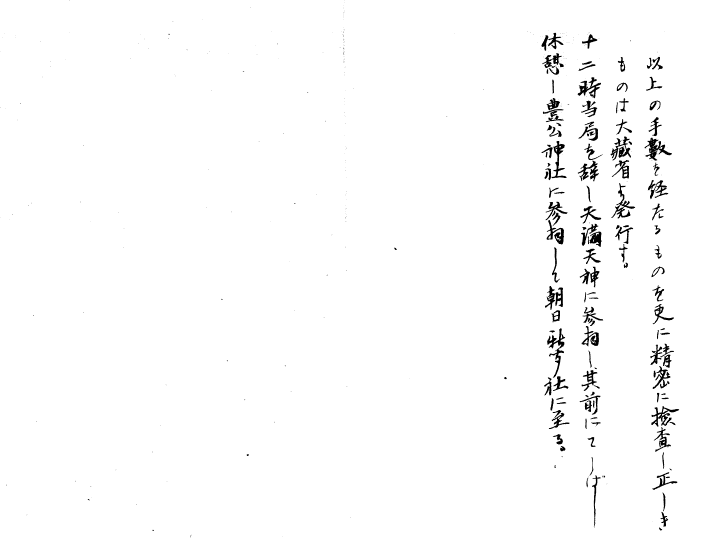 以上の手數を経たるものを更に精密に檢査し、正しき
ものは大藏省より発行す。
十二時当局を辞し天滿天神に参拝し、其前にてしばし
休憩し豊公神社に参拝して朝日新聞社に至る。